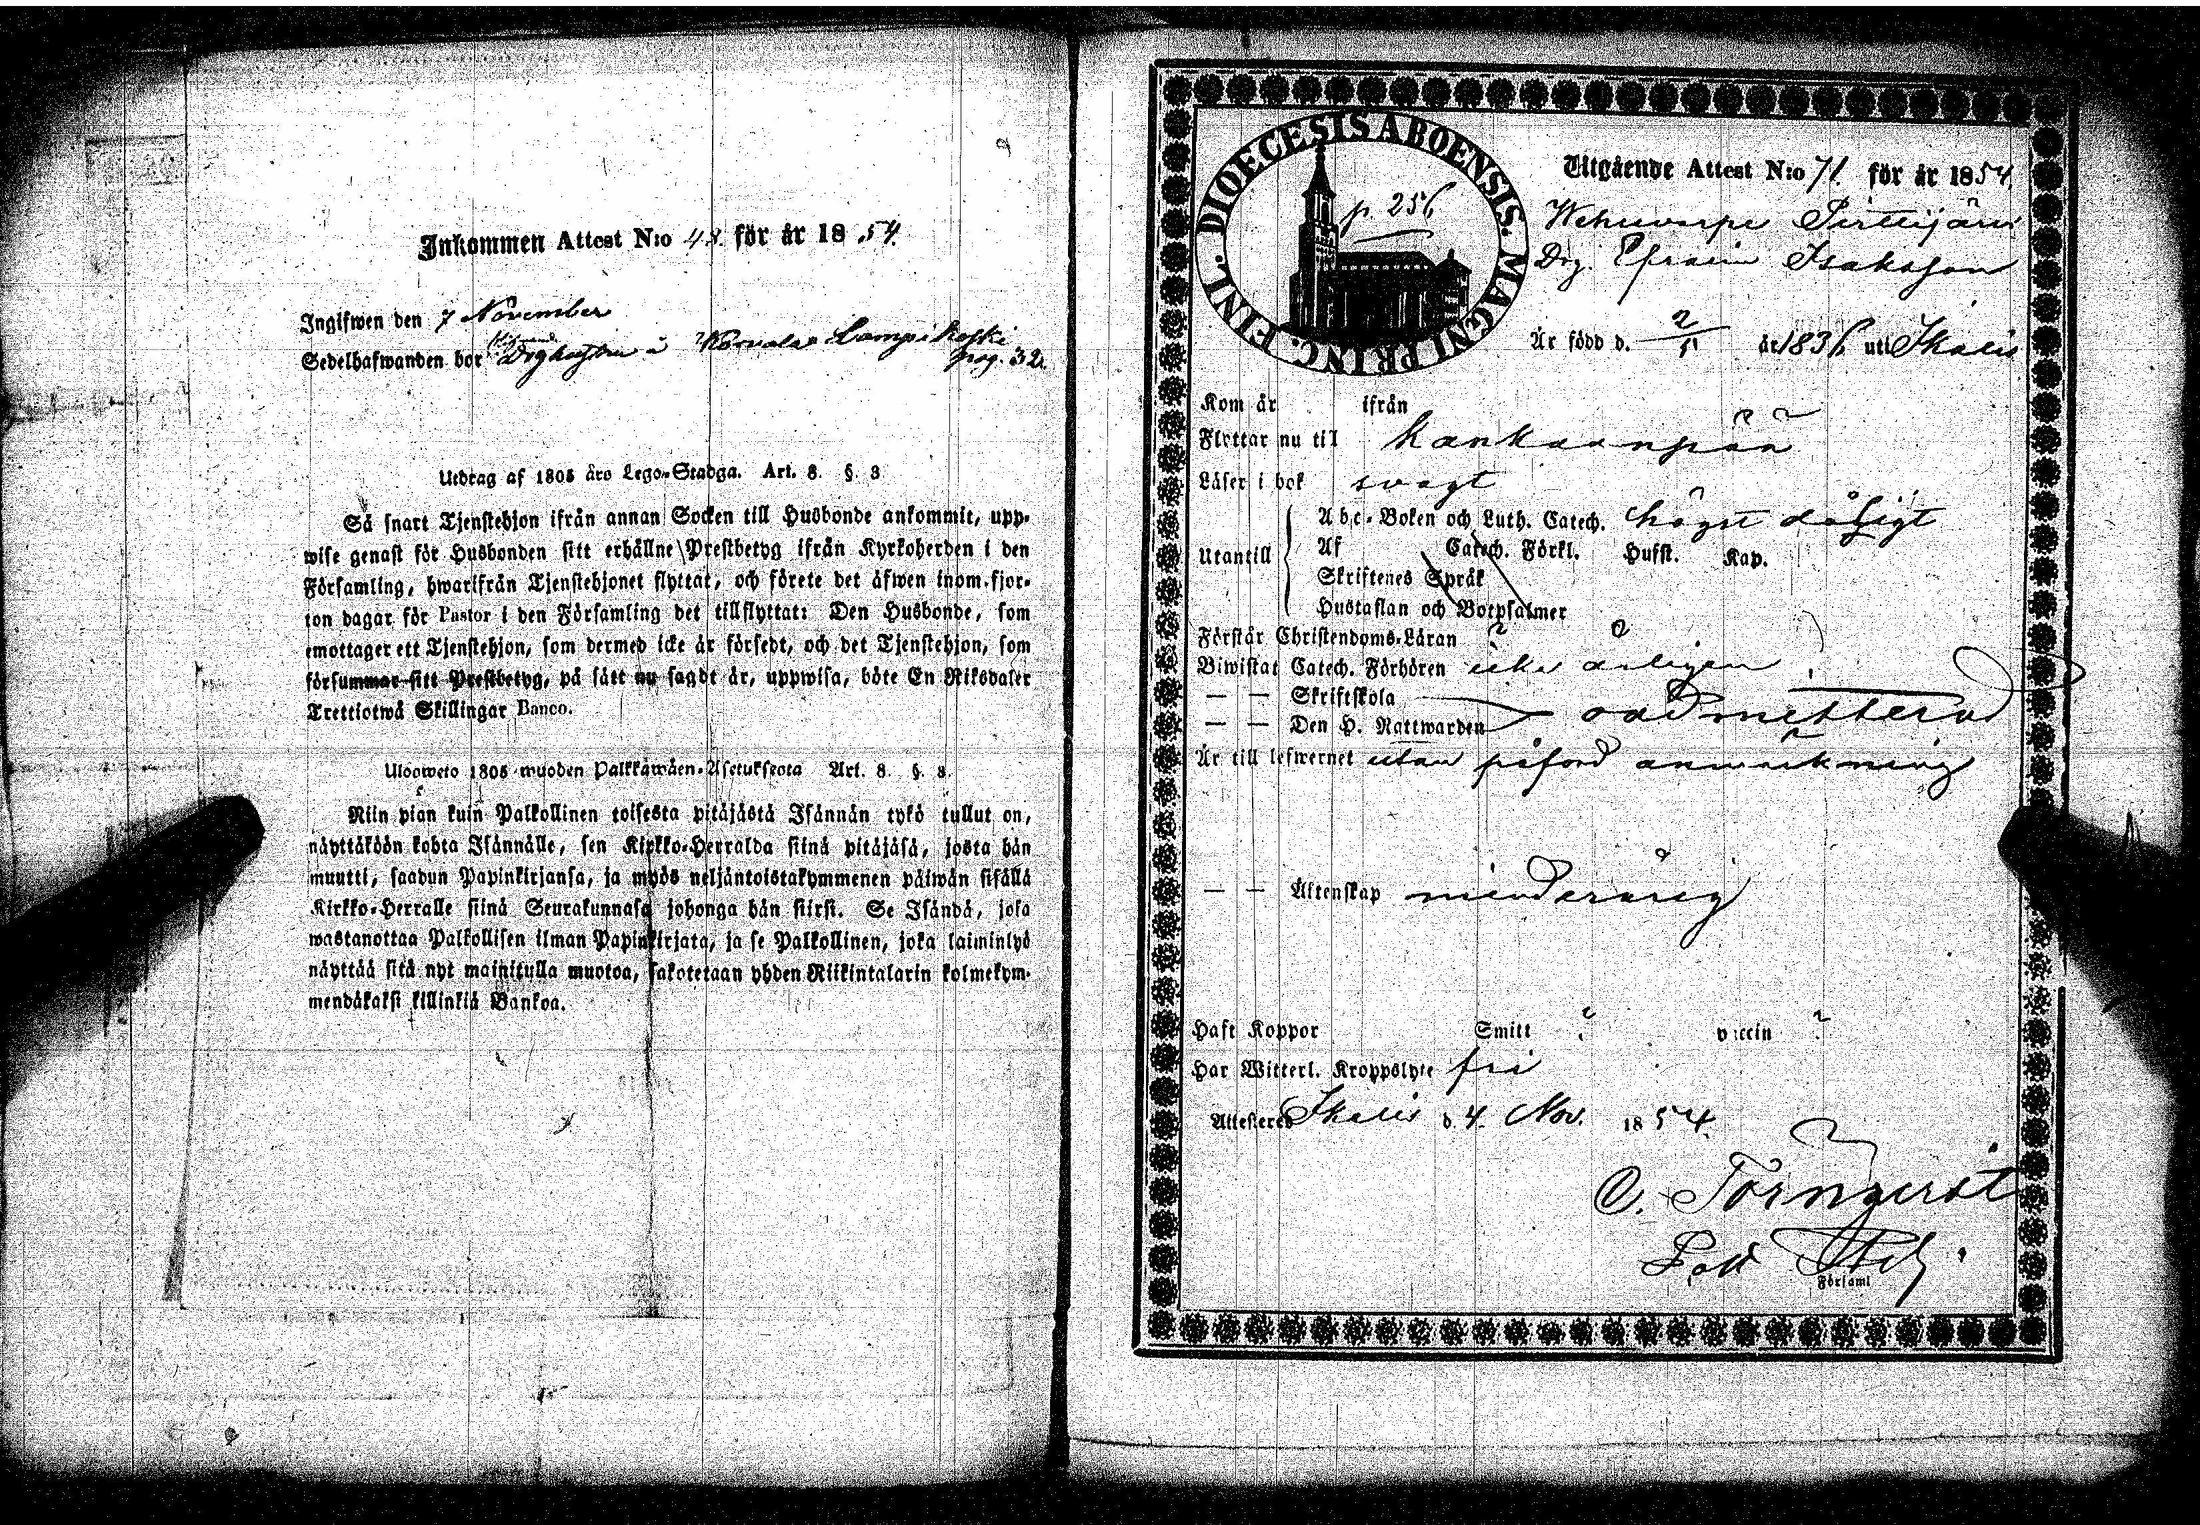 Inkommen Attest N:o 48 för år 1854
Ingifwen den 7 November
Sedelhafwanden bor i Lampikoski
pag. 32.
Utdrag af 1805 års Lego-Stadga. Art. 8. §. 3
Så snart Tjenstehjon ifrån annan Socken till Husbonde ankommit, upp-
wise genast för Husbonden sitt erhållne Prestbetyg ifrån Kyrkoherden i den
Församling, hwarifrån Tjenstehjonet flyttat, och förete det äfwen inom fjor-
ton dagar för Pastor i den Församling det tillflyttat: Den Husbonde, som
emottager ett Tjenstehjon, som dermed icke är försedt, och det Tjenstehjon, som
försummar sitt Prestbetyg, på sätt nu sagdt är, uppwisa, böte En Riksdaler
Trettiotwå Skillingar Banco.
Ulosweto 1805 wuoden Palkkawäen-Asetuksesta Art. 8. §. 3.
Niin pian kuin Palkollinen toisesta pitäjästä Isännän tykö tullut on,
näyttäköön kohta Isännälle, sen Kirkko-Herralda siinä pitäjäsä, josta hän
muutti, saadun Papinkirjansa, ja myös neljäntoistakymmenen päiwän sisällä
Kirkko-Herralle siinä Seurakunnasa johonga hän siirsi. Se Isändä, joka
wastanottaa Palkollisen ilman Papinkirjata, ja se Palkollinen, joka laiminlyö
näyttää sitä nyt mainitulla muotoa, sakotetaan yhden Riikintalarin kolmekym-
mendäkaksi killinkiä Bankoa.
DIOECESIS ABOENSIS. MAGNI PRINC. FINL.
p. 256
Utgående Attest N:o 71. för år 1854.
Wehuwarpe Pirttijärvi
Drg. Efraim Isaksson
Är född d. 2/5 år 1836 uti Ikalis
Kom år ifrån
Flyttar nu till Kankaanpää
Läser i bok svagt
Utantill
Abc-Boken och Luth. Catech. högst dåligt
Af Catech. Förkl. Hufst. Kap.
Skriftenes Språk
Hustaflan och Botpsalmer
Förstår Christendoms-Läran
Biwistat Catech. Förhören icke årligen
— — Skriftskola
— — Den H. Nattwarden oadmitterad
Är till lefwernet utan påförd anmärkning
— — Äktenskap minderårig
Haft Koppor Smitt ? vaccin ?
Har Witterl. Kroppslyte fri
Attesteras Ikalis d. 4. Nov. 1854.
O. Törnqvist
Församl